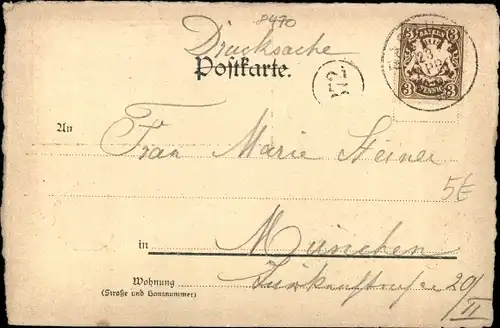 8470
Drucksache
Postkarte.
3 BAYERN 3
3 PFENNIG 3
An
Frau Marie Steiner
5€
in München
Wohnung
20/II
(Straße und Hausnummer)